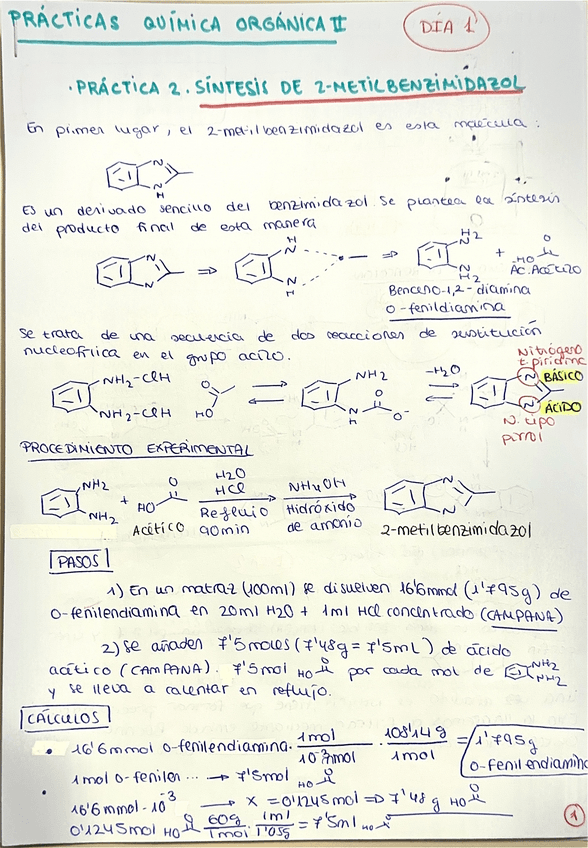 PRÁCTICAS QUÍMICA ORGÁNICA II
DÍA 1
· PRÁCTICA 2. SÍNTESIS DE 2-METILBENZIMIDAZOL
En primer lugar, el 2-metilbenzimidazol es esta molécula:
N
N
H
Es un derivado sencillo del benzimidazol. Se plantea la síntesis
del producto final de esta manera
N
N
⇒
H
N
N
H
⇒
H2
N
N
H2
+
O
HO
Ac. Acético
Benceno-1,2-diamina
o-fenildiamina
Se trata de una secuencia de dos reacciones de sustitución
nucleofílica en el grupo acilo.
Nitrógeno
t. piridina
NH2-ClH
NH2-ClH
O
HO
NH2
N
H
O
O-
-H2O
N
BÁSICO
N
ÁCIDO
N. tipo
pirrol
PROCEDIMIENTO EXPERIMENTAL
NH2
NH2
+
O
HO
Acético
H2O
HCl
Reflujo
90min
NH4OH
Hidróxido
de amonio
N
N
2-metilbenzimidazol
PASOS
1) En un matraz (100ml) se disuelven 16'6mmol (1'795g) de
o-fenilendiamina en 20ml H2O + 1ml HCl concentrado (CAMPANA)
2) Se añaden 7'5moles (7'48g = 7'5mL) de ácido
acético (CAMPANA). 7'5mol HO O por cada mol de NH2 NH2
y se lleva a calentar en reflujo.
CÁLCULOS
• 16'6mmol o-fenilendiamina · 1mol / 10^3mmol · 108'14g / 1mol = 1'795g
o-fenilendiamina
• 1mol o-fenilen ... → 7'5mol HO O
16'6mmol·10^-3 → x = 0'1245mol ⇒ 7'48g HO O
0'1245mol HO O · 60g / 1mol · 1ml / 1'05g = 7'5ml HO O
1